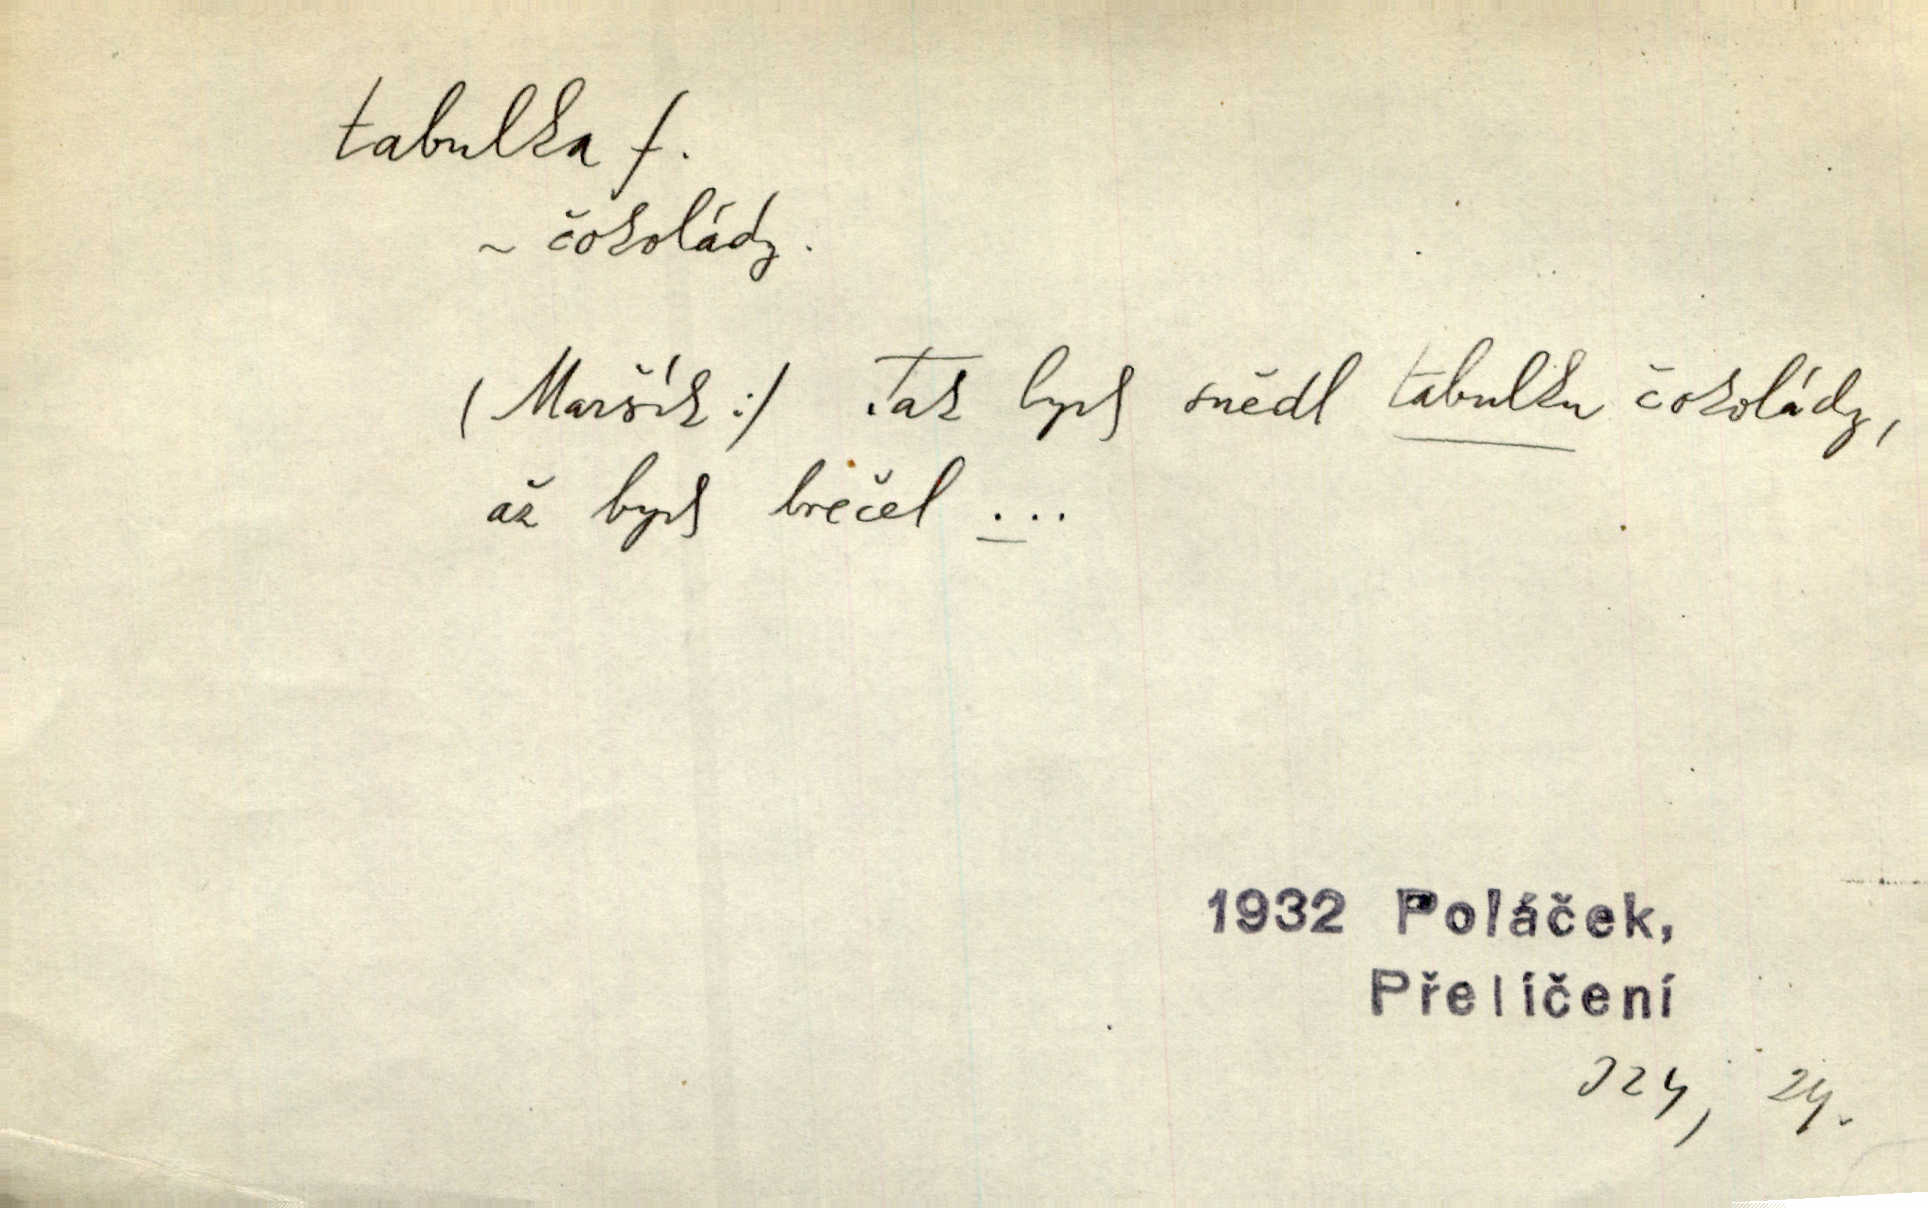 tabulka f.
~ čokolády.
(Maršík:) Tak bych snědl tabulku čokolády,
až bych brečel ...
1932 Poláček,
Přelíčení
24.